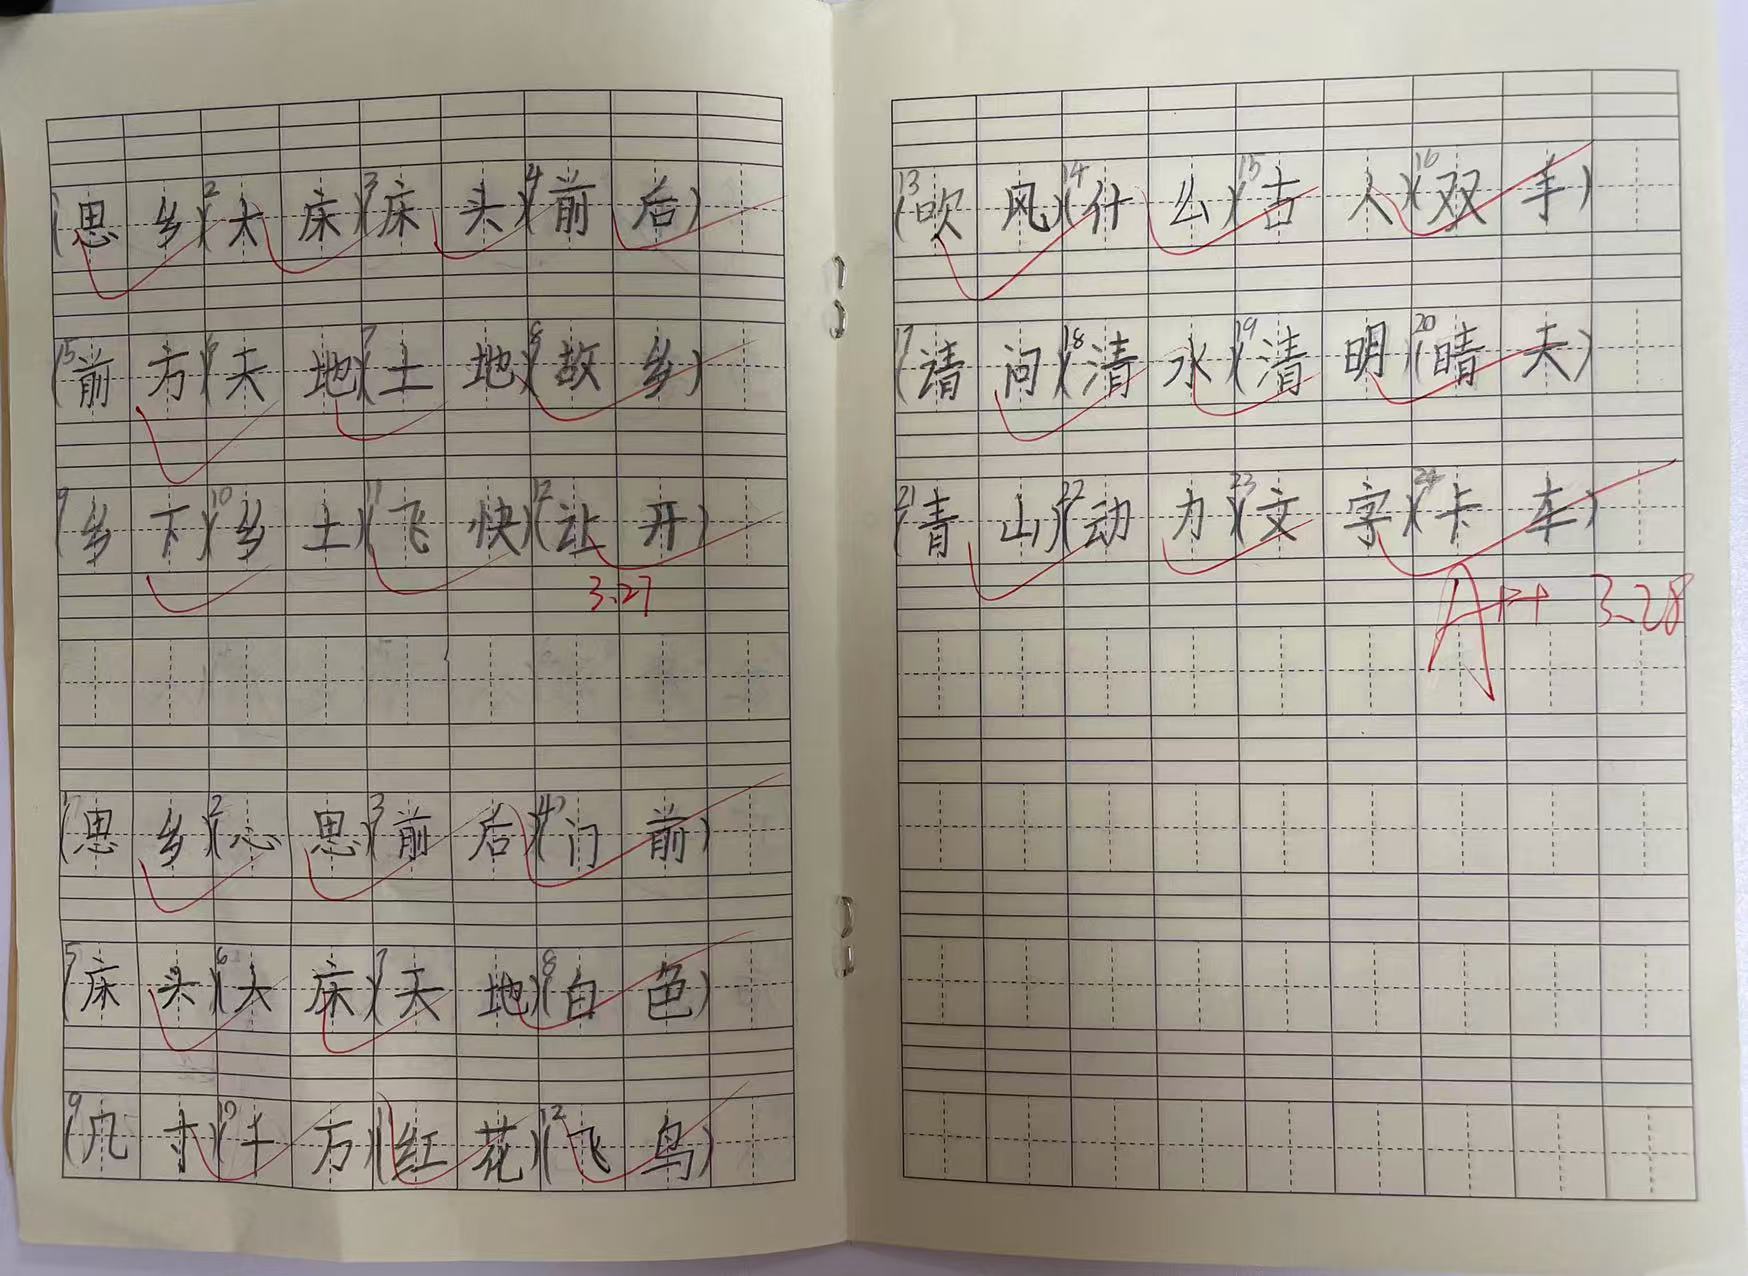 (1思乡)(2大床)(3床头)(4前后)
(5前方)(6天地)(7土地)(8故乡)
(9乡下)(10乡土)(11飞快)(12让开)
3.27
(1思乡)(2心思)(3前后)(4门前)
(5床头)(6大床)(7天地)(8白色)
(9几寸)(10千方)(红花)(12飞鸟)
(13吹风)(14什么)(15古人)(16双手)
(17请问)(18清水)(19清明)(20晴天)
(21青山)(22动力)(23文字)(24卡车)
A++ 3.28